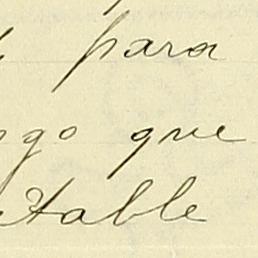 para
go que
table